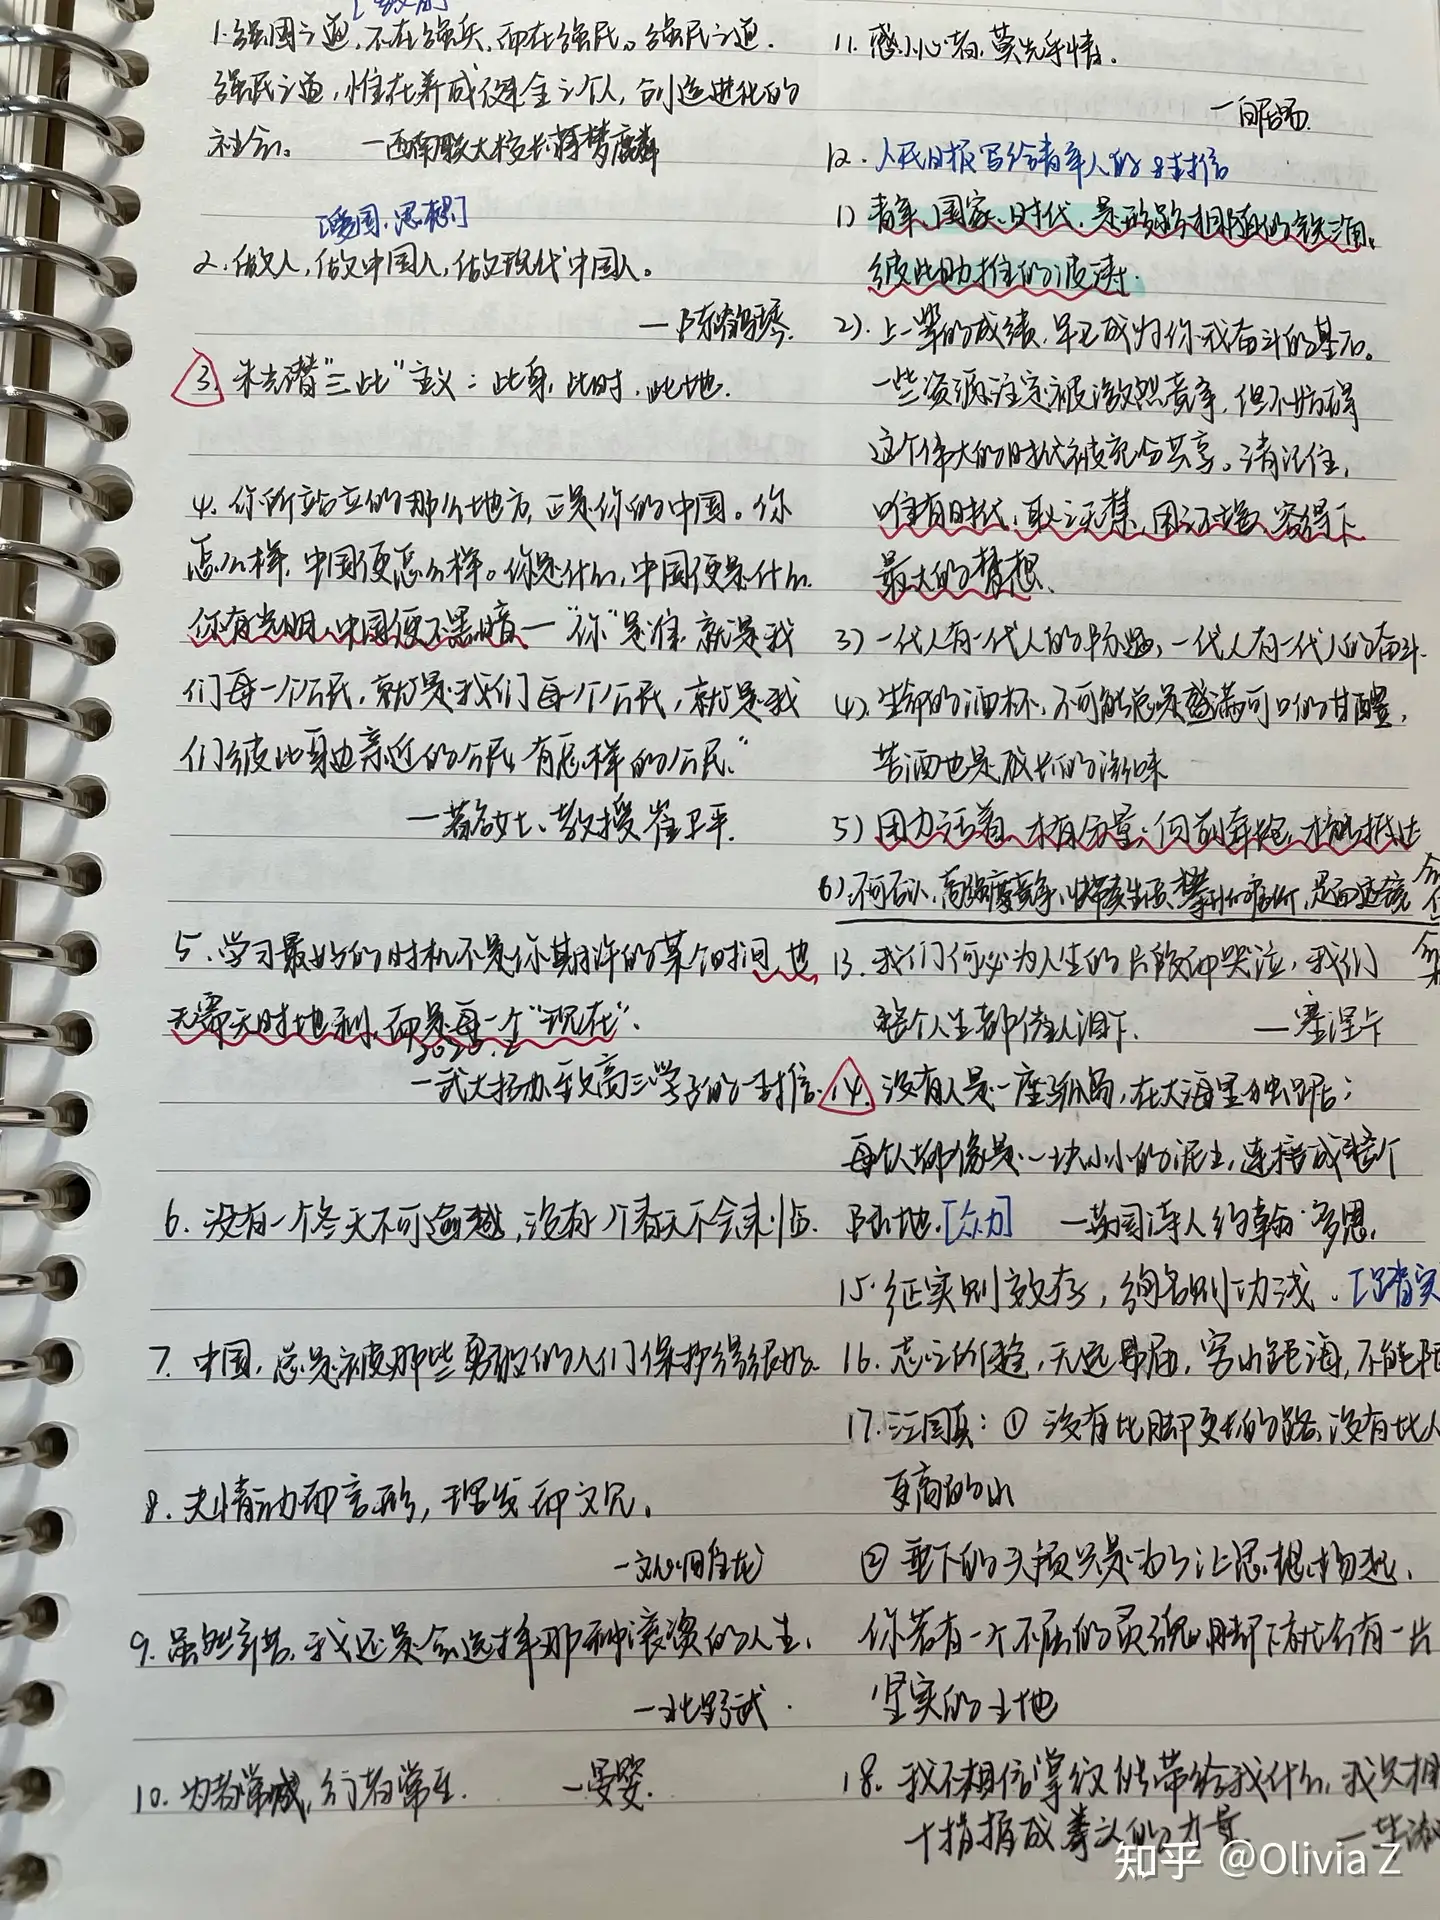 [教育]
1.强国之道,不在强兵,而在强民。强民之道.
强民之道,惟在养成健全之个人,创造进化的
社会。 —西南联大校长蒋梦麟
[爱国.思想]
2.做人,做中国人,做现代中国人。
—陈鹤琴.
3.朱光潜"三此"主义:此身,此时.此地.
4.你所站立的那个地方,正是你的中国。你
怎么样,中国便怎么样。你是什么,中国便是什么.
你有光明,中国便不黑暗—"你"是谁,就是我
们每一个公民,就是我们每一个公民,就是我
们彼此身边亲近的公民,有怎样的公民."
—著名女士、教授崔卫平.
5.学习最好的时机不是你期许的某个时间,也
无需天时地利,而是每一个"现在".
—武大招办致高三学子的一封信.
6.没有一个冬天不可逾越,没有1个春天不会来临.
7.中国,总是被那些勇敢的人们保护得很好.
8.夫情动而言形,理发而文见.
—文心雕龙
9.虽然辛苦,我还是会选择那种滚烫的人生.
—北野武.
10.为者常成,行者常至. —晏婴.
11.感人心者,莫先乎情.
—白居易.
12.人民日报写给青年人的8封信
1)青年、国家、时代.是形影相随的铁三角,
彼此助推的波涛.
2).上一辈的成绩,早已成为你我奋斗的基石。
一些资源注定被激烈竞争,但不妨碍
这个伟大的时代被充分共享。请记住,
唯有时代,取之无禁,用之不竭,容得下
最大的梦想.
3)一代人有一代人的难题,一代人有一代人的奋斗.
4).生命的酒杯,不可能总是盛满可口的甘醴,
苦酒也是成长的滋味
5)用力活着,才有分量;向前奔跑,才能抵达
6).不可否认,高强度竞争、快节奏生活、攀升的房价,是
13.我们何必为人生的片段而哭泣,我们
整个人生都催人泪下. —塞涅卡
14.没有人是一座孤岛,在大海里独踞;
每个人都像是一块小小的泥土,连接成整个
陆地.[众力] —英国诗人约翰·多恩.
15.征实则效存,徇名则功浅.[
16.志之所趋,无远弗届,穷山距海,不能限
17.汪国真:①没有比脚更长的路,没有比人
更高的山
②垂下的头颅只是为了让思想扬起,
你若有一个不屈的灵魂,脚下就会有一片
坚实的土地
18.我不相信掌纹能带给我什么,我只相
十指握成拳头的力量
知乎 @Olivia Z